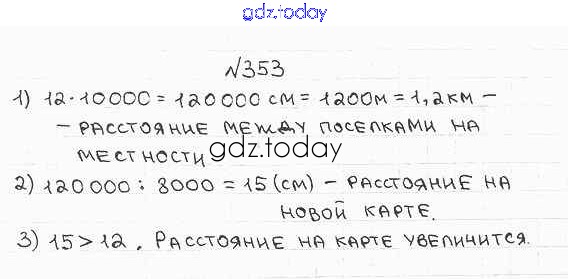 gdz.today
№353
1) 12·10000 = 120000 см = 1200м = 1,2 км –
– расстояние между поселками на
местности
gdz.today
2) 120000 : 8000 = 15 (см) – расстояние на
новой карте.
3) 15 > 12. Расстояние на карте увеличится.